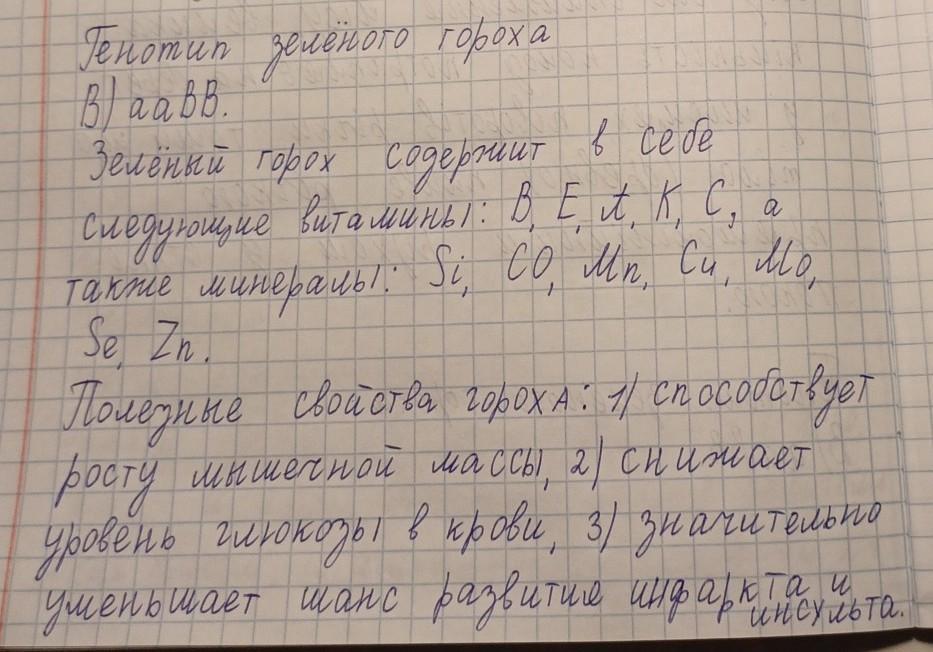 Генотип зелёного гороха
В) ааВВ.
Зелёный горох содержит в себе
следующие витамины: В, Е, А, К, С, а
также минералы: Si, CO, Mn, Cu, Mo,
Se, Zn.
Полезные свойства гороха: 1) способствует
росту мышечной массы, 2) снижает
уровень глюкозы в крови, 3) значительно
уменьшает шанс развития инфаркта и
инсульта.